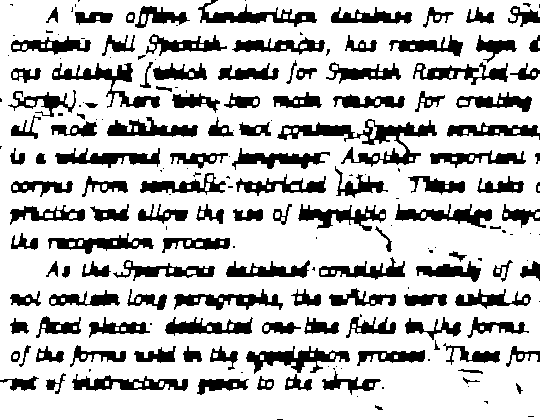 A new offline handwritten database for the Spa
contains full Spanish sentences, has recently been d
ous database (which stands for Spanish Restricted-do
Script). There were two main reasons for creating
all, most databases do not contain Spanish sentences,
is a widespread major language. Another important r
corpus from semantic-restricted tasks. These tasks c
practice and allow the use of linguistic knowledge beyo
the recognition process.
As the Spartacus database consisted mainly of sh
not contain long paragraphs, the writers were asked to
in fixed places: dedicated one-line fields in the forms.
of the forms used in the acquisition process. These for
set of instructions given to the writer.